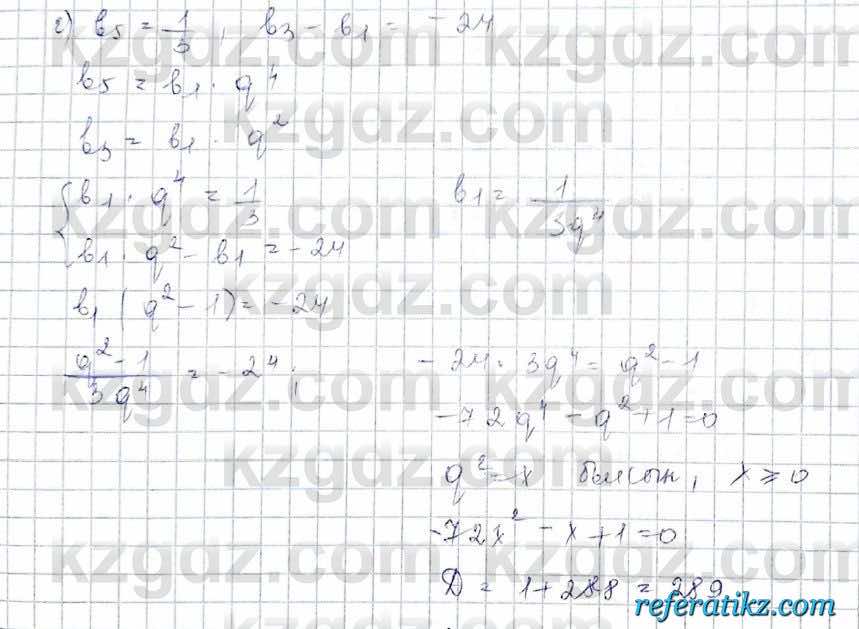 г) b₅ = 1/3, b₃ - b₁ = -24
b₅ = b₁ · q⁴
b₃ = b₁ · q²
{ b₁ · q⁴ = 1/3
b₁ = 1/3q⁴
b₁ · q² - b₁ = -24
b₁ (q² - 1) = -24
(q² - 1)/3q⁴ = -24;
-24 · 3q⁴ = q² - 1
-72q⁴ - q² + 1 = 0
q² = x болсын, x ⩾ 0
-72x² - x + 1 = 0
D = 1 + 288 = 289
kzgdz.com
referatikz.com